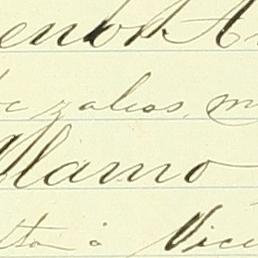 enor A
zaless, m
Alamo
tta á Vice